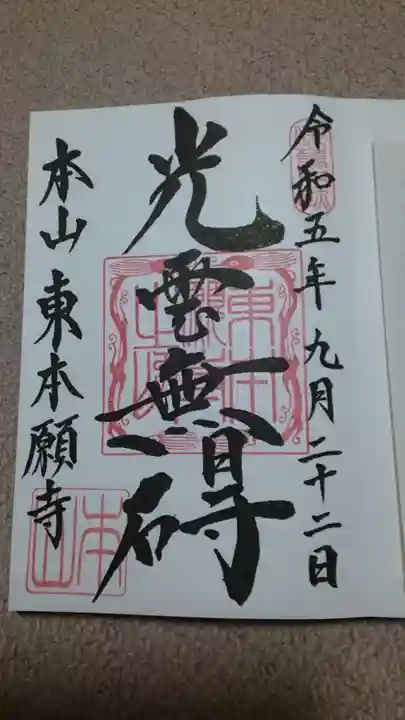 令和五年九月二十二日
光雲無碍
本山東本願寺
本山